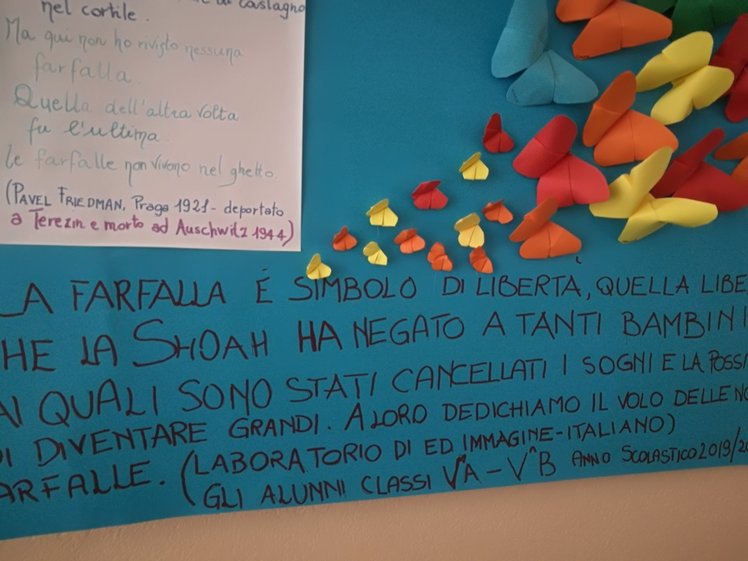 nel cortile.
Ma qui non ho rivisto nessuna
farfalla.
Quella dell'altra volta
fu l'ultima.
le farfalle non vivono nel ghetto.
(PAVEL FRIEDMAN, Praga 1921 - deportato
a Terezin e morto ad Auschwitz 1944)
LA FARFALLA É SIMBOLO DI LIBERTÀ, QUELLA LIBE
HE LA SHOAH HA NEGATO A TANTI BAMBINI
AI QUALI SONO STATI CANCELLATI I SOGNI E LA POSSI
DI DIVENTARE GRANDI. A LORO DEDICHIAMO IL VOLO DELLE NO
ARFALLE. (LABORATORIO DI ED IMMAGINE-ITALIANO)
GLI ALUNNI CLASSI V^A - V^B ANNO SCOLASTICO 2019/20